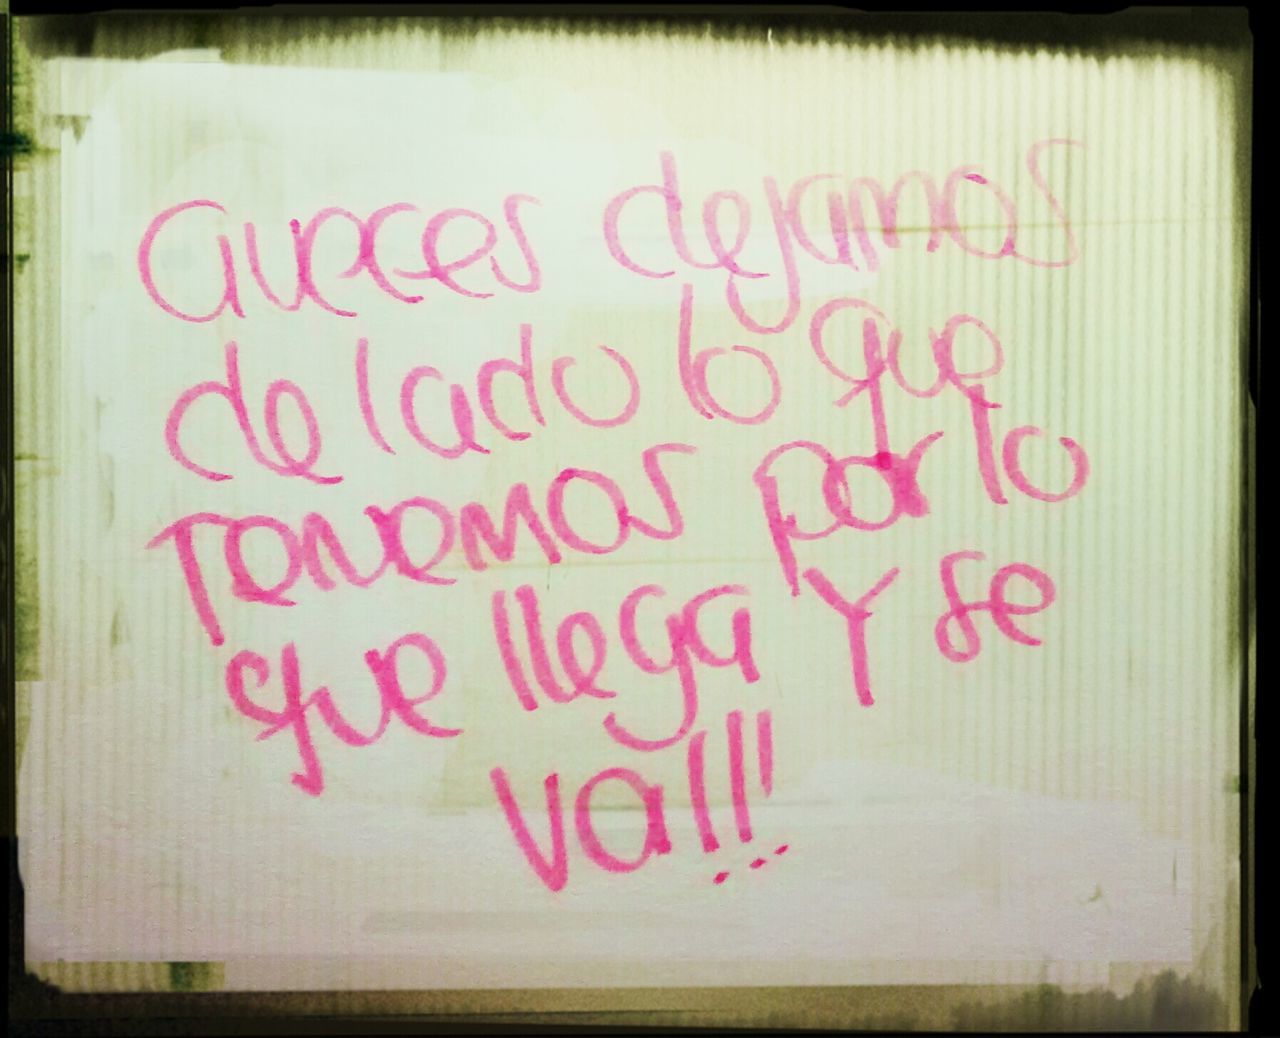 aveces dejamos
de lado lo que
Tenemos por lo
que llega Y se
va!!!